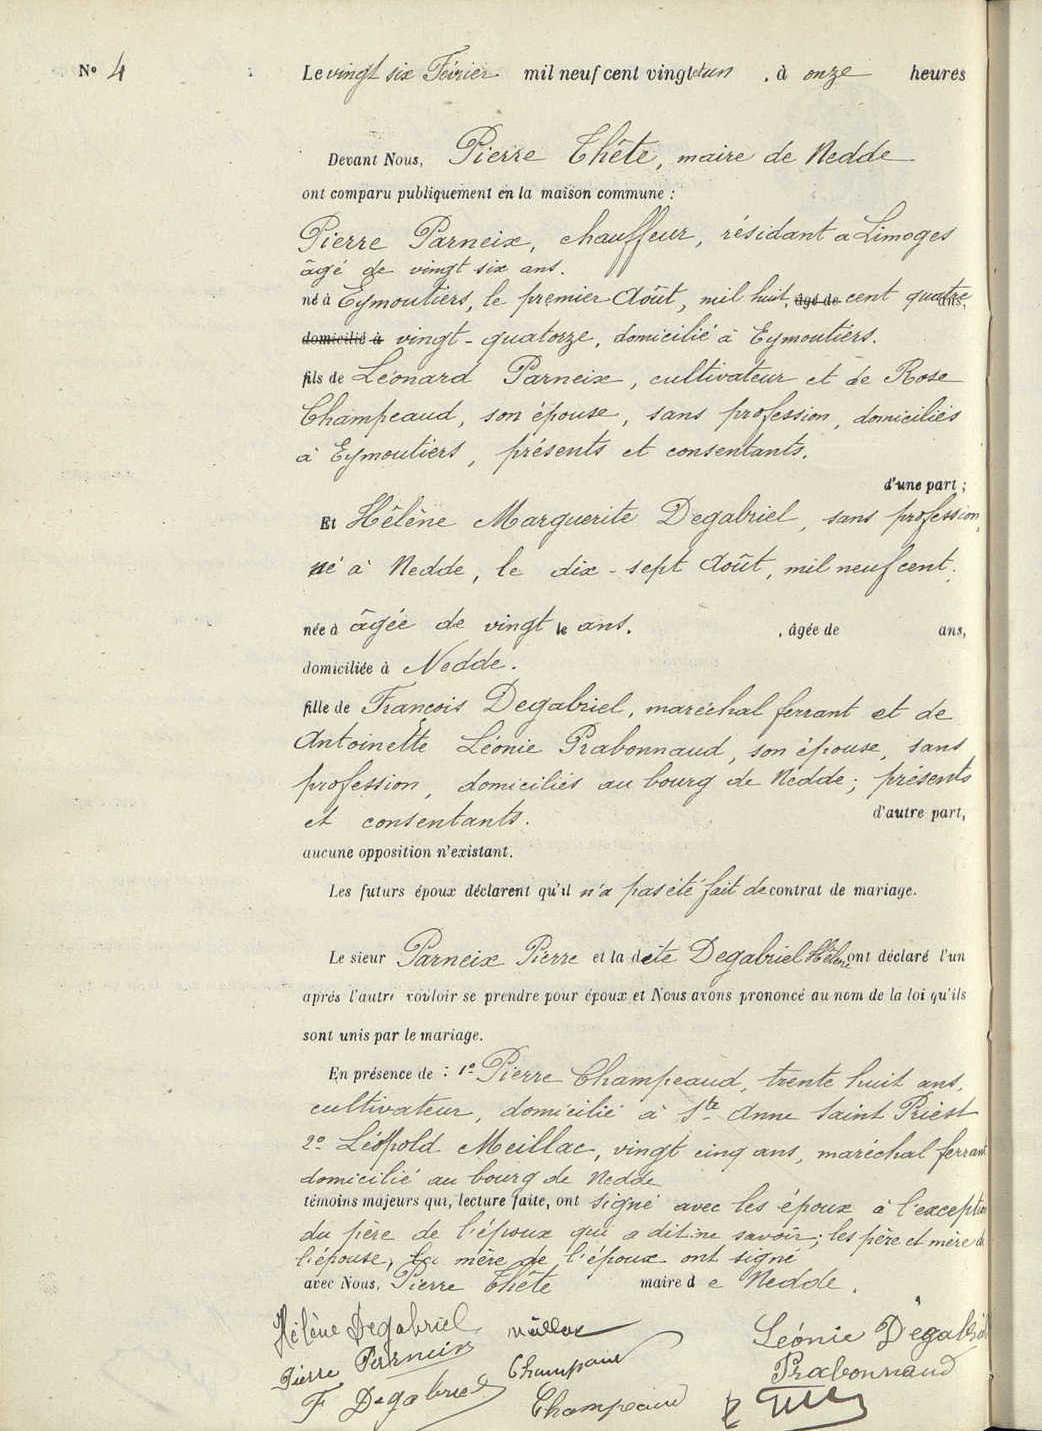 N° 4
Le vingt six Février mil neuf cent vingt et un, à onze heures
Devant Nous, Pierre Thête, maire de Nedde
ont comparu publiquement en la maison commune :
Pierre Parneix, chauffeur, résidant a Limoges
âgé de vingt six ans.
né à Eymoutiers, le premier Août, mil huit, âgé de cent quatre ans,
domicilié à vingt-quatorze, domicilié à Eymoutiers.
fils de Léonard Parneix, cultivateur et de Rose
Champeaud, son épouse, sans profession, domiciliés
à Eymoutiers, présents et consentants.
d'une part ;
Et Hélène Marguerite Degabriel, sans profession,
né à Nedde, le dix-sept Août, mil neuf cent.
née à âgée de vingt le ans. , âgée de ans,
domiciliée à Nedde.
fille de François Degabriel, maréchal ferrant et de
Antoinette Léonie Prabonnaud, son épouse, sans
profession, domiciliés au bourg de Nedde ; présents
et consentants. d'autre part,
aucune opposition n'existant.
Les futurs époux déclarent qu'il n'a pas été fait de contrat de mariage.
Le sieur Parneix Pierre et la dite Degabriel Hélène ont déclaré l'un
après l'autre vouloir se prendre pour époux et Nous avons prononcé au nom de la loi qu'ils
sont unis par le mariage.
En présence de : 1° Pierre Champeaud, trente huit ans,
cultivateur, domicilié à Ste Anne Saint Priest
2° Léopold Meillac, vingt cinq ans, maréchal ferrant
domicilié au bourg de Nedde
témoins majeurs qui, lecture faite, ont signé avec les époux à l'exception
du père de l'époux qui a dit ne savoir ; les père et mère de
l'épouse, la mère de l'époux ont signé
avec Nous, Pierre Thête maire de Nedde.
Hélène Degabriel Meillac Léonie Degabriel
Pierre Parneix Champeaud Prabonnaud
F Degabriel Champeaud